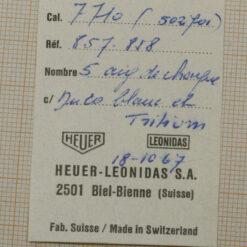 Cal. 7710 (
Réf. 857.818
Nombre 5 aig de chaque
c/ blanc et
Tritium
HEUER LEONIDAS
18-10 67
HEUER-LEONIDAS S.A.
2501 Biel-Bienne (Suisse)
Fab. Suisse / Made in Switzerland